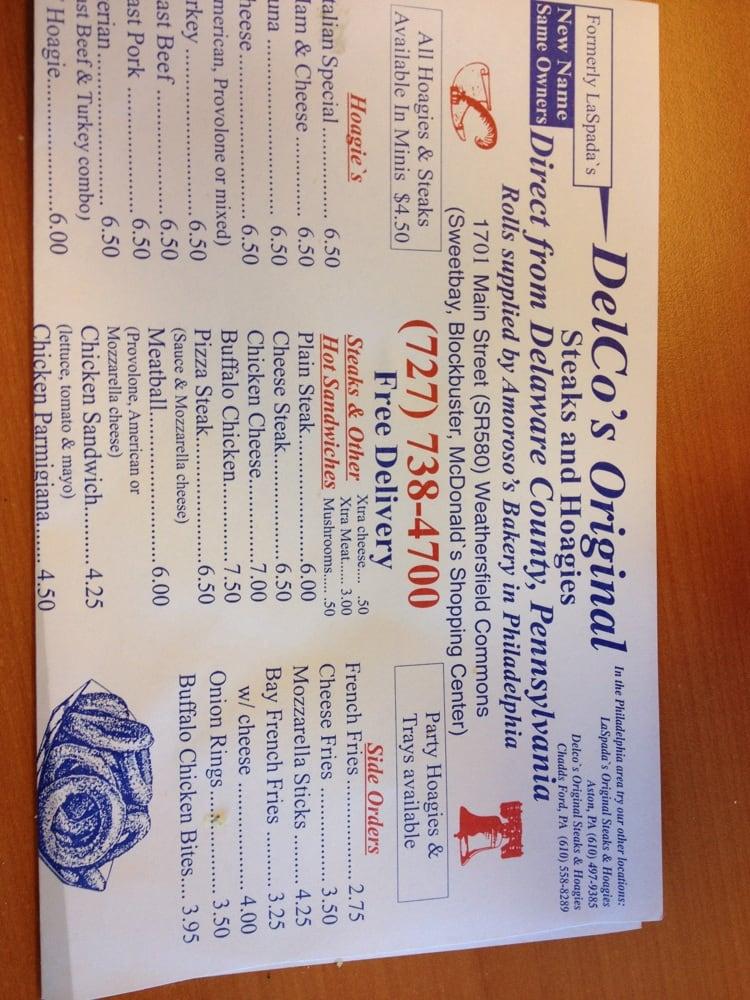 Formerly LaSpada`s
New Name
Same Owners
DelCo's Original
Steaks and Hoagies
Direct from Delaware County, Pennsylvania
Rolls supplied by Amoroso's Bakery in Philadelphia
1701 Main Street (SR580) Weathersfield Commons
(Sweetbay, Blockbuster, McDonald`s Shopping Center)
In the Philadelphia area try our other locations:
LaSpada's Original Steaks & Hoagies
Aston, PA (610) 497-9385
Delco's Original Steaks & Hoagies
Chadds Ford, PA (610) 558-8289
All Hoagies & Steaks
Available In Minis $4.50
(727) 738-4700
Free Delivery
Party Hoagies &
Trays available
Hoagie`s
talian Special.............. 6.50
Ham & Cheese............ 6.50
una .......................... 6.50
heese........................ 6.50
merican, Provolone or mixed)
rkey ......................... 6.50
ast Beef .................... 6.50
ast Pork .................... 6.50
erian......................... 6.50
ast Beef & Turkey combo)
Hoagie..................... 6.00
Steaks & Other
Hot Sandwiches
Xtra cheese.... .50
Xtra Meat...... 3.00
Mushrooms..... .50
Plain Steak................... 6.00
Cheese Steak................ 6.50
Chicken Cheese............. 7.00
Buffalo Chicken............ 7.50
Pizza Steak.................. 6.50
(Sauce & Mozzarella cheese)
Meatball....................... 6.00
(Provolone, American or
Mozzarella cheese)
Chicken Sandwich....... 4.25
(lettuce, tomato & mayo)
Chicken Parmigiana...... 4.50
Side Orders
French Fries.................. 2.75
Cheese Fries ................. 3.50
Mozzarella Sticks ......... 4.25
Bay French Fries ........... 3.25
w/ cheese ................... 4.00
Onion Rings ................. 3.50
Buffalo Chicken Bites.... 3.95